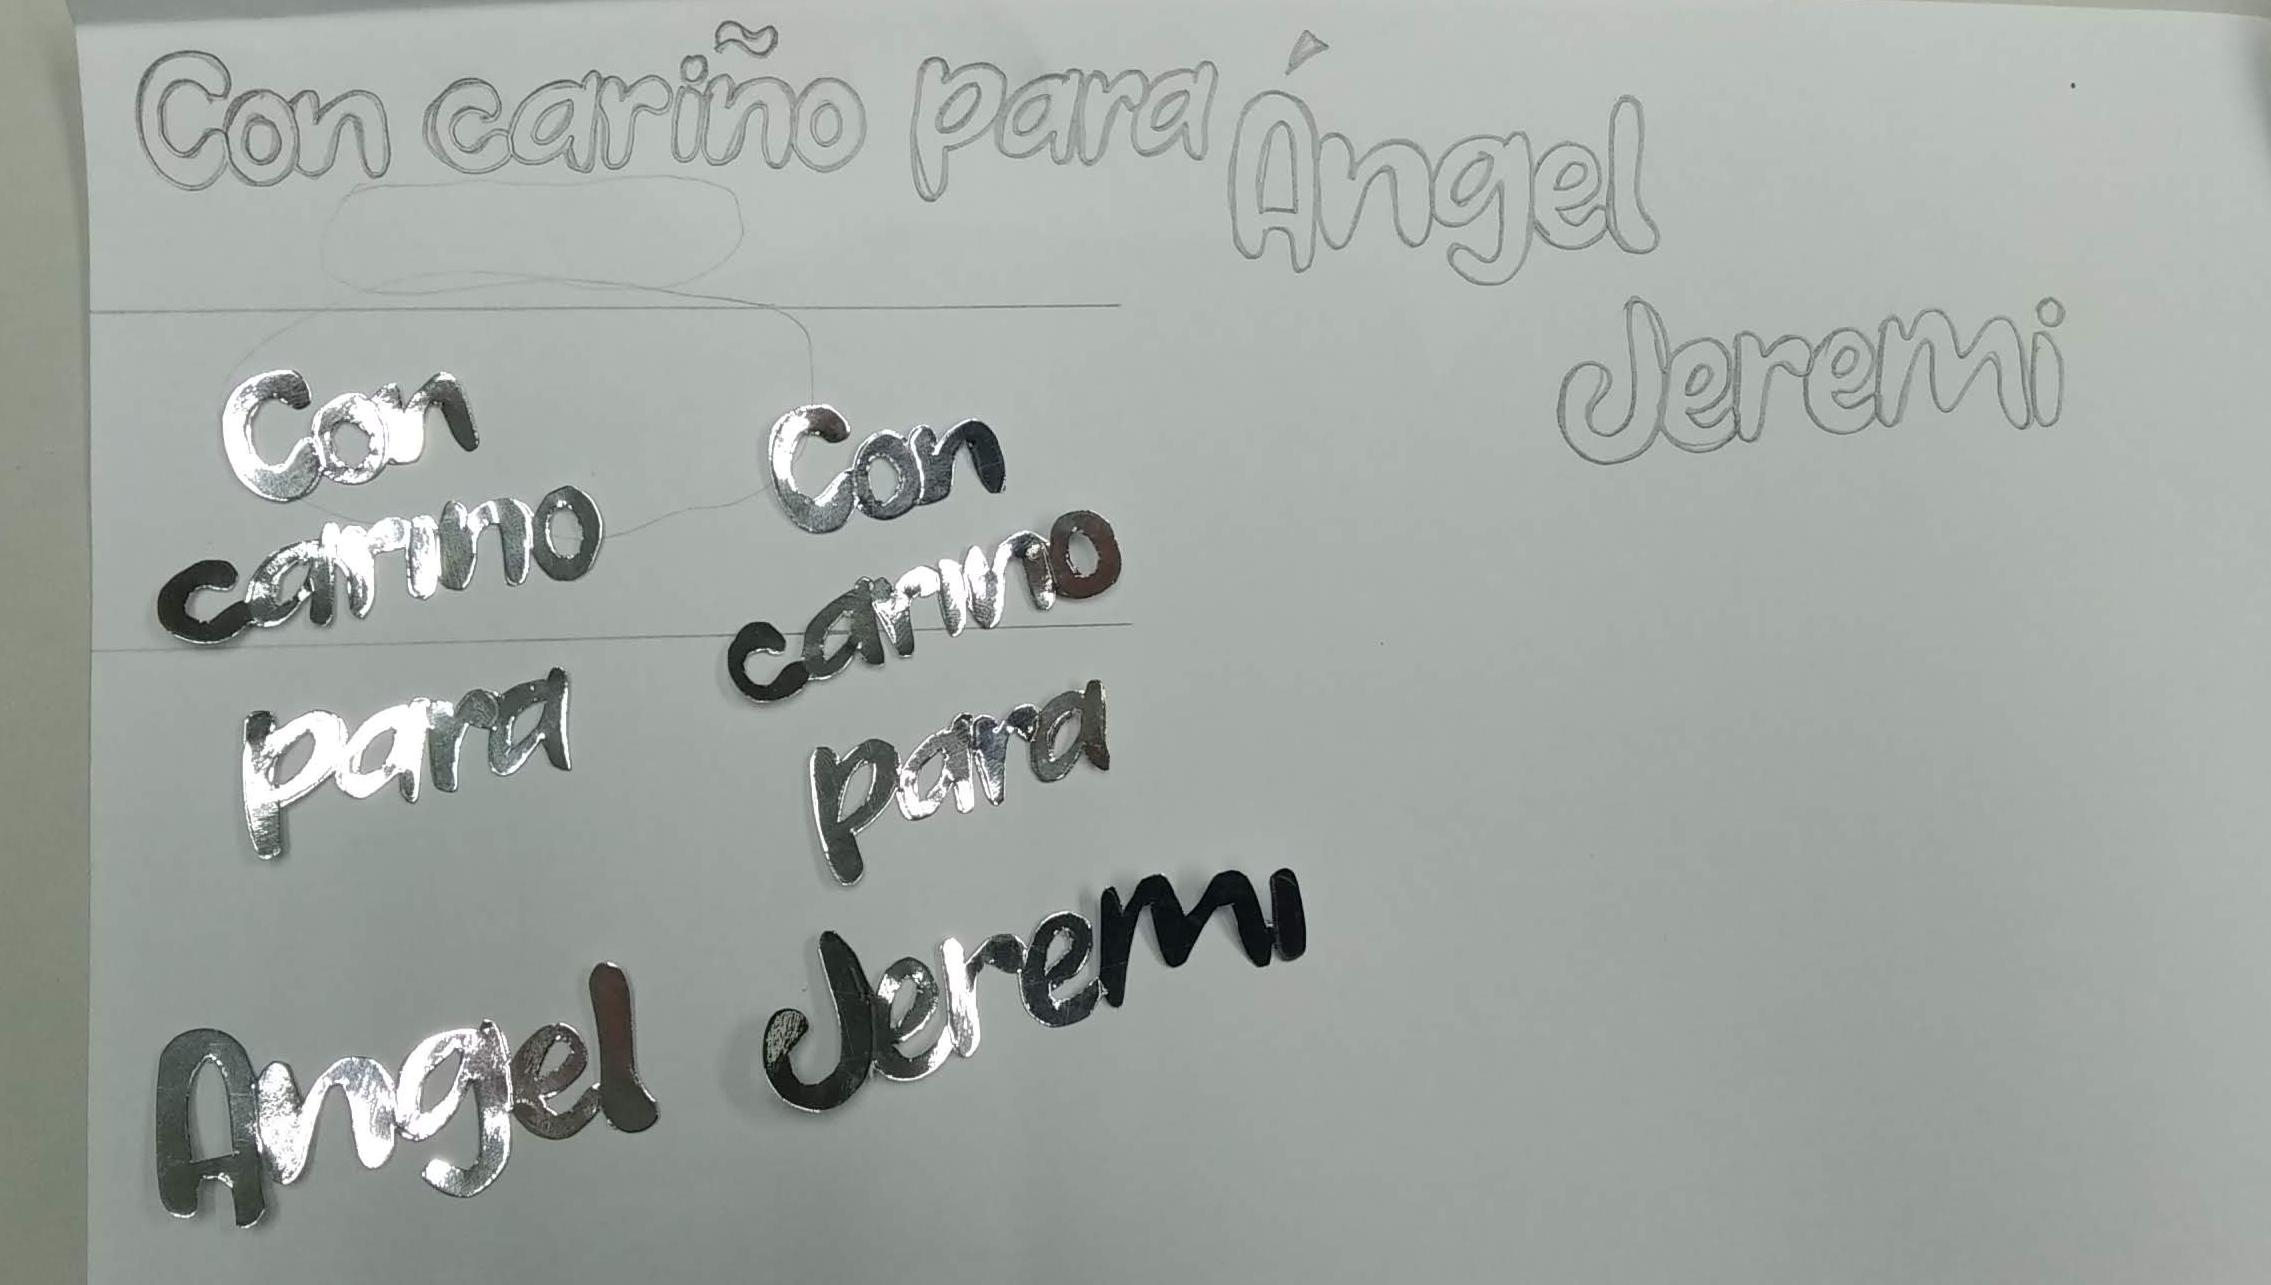 Con cariño para Ángel
Jeremi
Con
carino
para
Angel
Con
carino
para
Jeremi